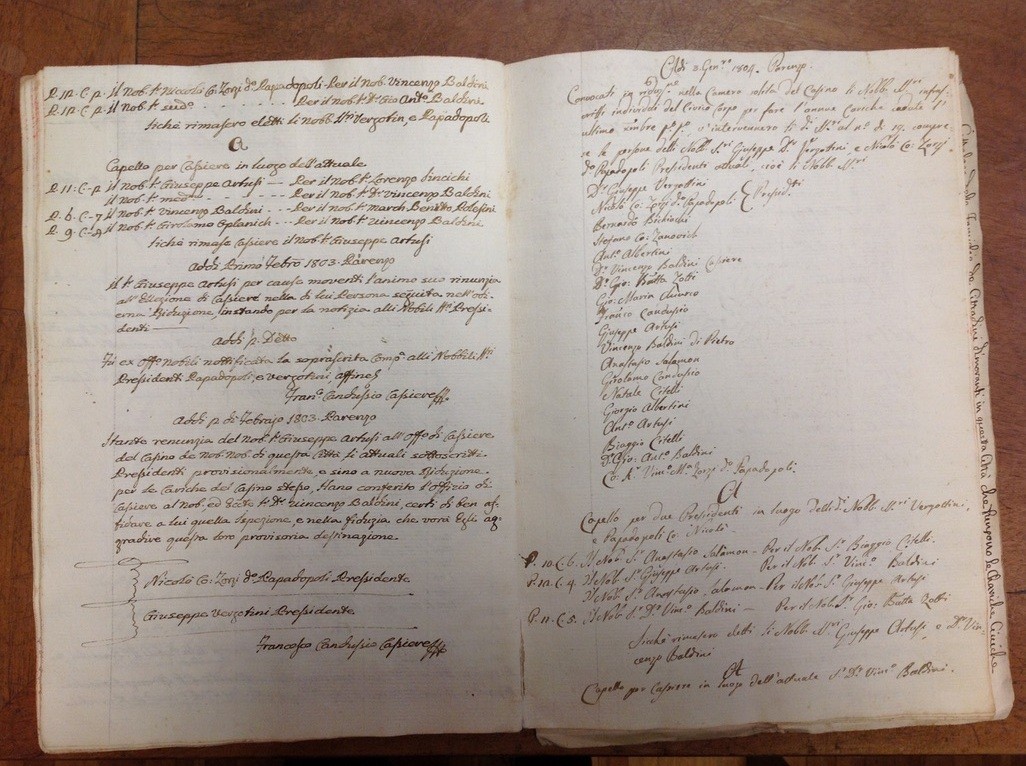 P. 12. C. p. il Nob. Sr. Nicolò Co: Zorzi do. Papadopoli. Per il Nob. Vincenzo Baldini
P. 12. C. p. il Nob. Sr. sudo. Per il Nob. Sr. Dr. Gio: Anto. Baldini
sichè rimasero eletti li Nobb. Vergotin, e Papadopoli
A
Capello per Cassiere in luogo dell'attuale
P. 11: C. p. il Nob. Sr. Giuseppe Artusi — Per il Nob. Sr. Lorenzo Sincichi
il Nob. Sr. medo. Per il Nob. Sr. Dr. Vincenzo Baldini
P. 6. C. 7. il Nob. Sr. Vincenzo Baldini. Per il Nob. Sr. March. Benetto Polesini
P. 9. C. 4. il Nob. Sr. Girolamo Oplanich Per il Nob. Sr. Vincenzo Baldini
sichè rimase Cassiere il Nob. Sr. Giuseppe Artusi
Addì Primo Febro 1803. Parenzo
il Sr. Giuseppe Artusi per cause moventi l'animo suo rinunzia
all'Elezione di Cassiere nella di lui Persona seguita nell'odi-
erna Riduzione, instando per la notizia alli Nobili Sri. Pressi-
denti —
Addì p. Detto
Fù ex Offo. Nobili nottificata la soprascrita Compa. alli Nobbili Sri.
Pressidenti Papadopoli, e Vergotini, affines
Frano. Candussio Cassiere
Addì p. di Febrajo 1803. Parenzo
Stante renunzia del Nob. Sr. Giuseppe Artusi all'Offo. di Cassiere
del Casino de Nob. Nob. di questa Città, li attuali sottoscritti
Pressidenti provisionalmente, e sino a nuova Riduzione
per le Cariche del Casino stesso, hano conferito l'Officio di
Cassiere al Nob. ed Eccte. Sr. Dr. Vincenzo Baldini, certi di ben af-
fidare a lui quella Ispezione, e nella fiduzia che vorà Egli ag-
gradire questa loro provisoria destinazione.
Nicolò Co: Zorzi do. Papadopoli Pressidente
Giuseppe Vergotini Pressidente
Francesco Candussio Cassiere
Addì 2 Genro. 1804. Parenzo.
Convocati, e ridotti nella Camera solita del Casino li Nobb. Sri. infras-
critti individui del Civico Corpo per fare l'annue Cariche
ultimo Xmbre po. po., v'intervennero li di Sri. al no. di 19. compre-
se le persone delli Nobb. Sri. Giuseppe Dr. Vergottini e Nicolò Co: Zorzi
do. Papadopoli Presidenti attuali, cioè li Nobb. Sri.
Dr. Giuseppe Vergottini
Nicolò Co: Zorzi do. Papadopoli } Presidti.
Bernardo Bichiachi
Stefano Co: Zanovich
Anto. Albertini
Dr. Vincenzo Baldini Cassiere
Dr. Gio: Batta Zotti
Gio: Maria
Franco Candussio
Giuseppe Artusi
Vincenzo Baldini di Pietro
Anastasio Salamon
Girolamo Candussio
Natale Citelli
Giorgio Albertini
Anto. Artusi
Biaggio Citelli
Dr. Gio: Anto: Baldini
Co: Kr. Vinco. Ma. Zorzi do. Papadopoli.
A
Capello per due Presidenti in luogo delli di. Nobb. Sri. Vergottini,
e Papadopoli Co: Nicolò.
P. 10. C. 6. Il Nob. Sr. Anastasio Salamon - Per il Nob. Sr. Biaggio Citelli.
P. 12. C. 4. Il Nob. Sr. Giuseppe Artusi. Per il Nob. Sr. Vinco. Baldini
Il Nob. Sr. Anastasio Salamon - Per il Nob. Sr. Giuseppe Artusi
P. 11. C. 5. Il Nob. Sr. Dr. Vinco. Baldini — Per il Nob. Sr. Gio: Batta Zotti
Sicchè rimasero eletti li Nobb. Sri. Giuseppe Artusi, e Dr. Vin-
cenzo Baldini
A
Capello per Cassiere in luogo dell'attuale Sr. Dr. Vinco. Baldini.
Famiglia de Citadini dimoranti in questa Città che fungono le Cariche Civiche